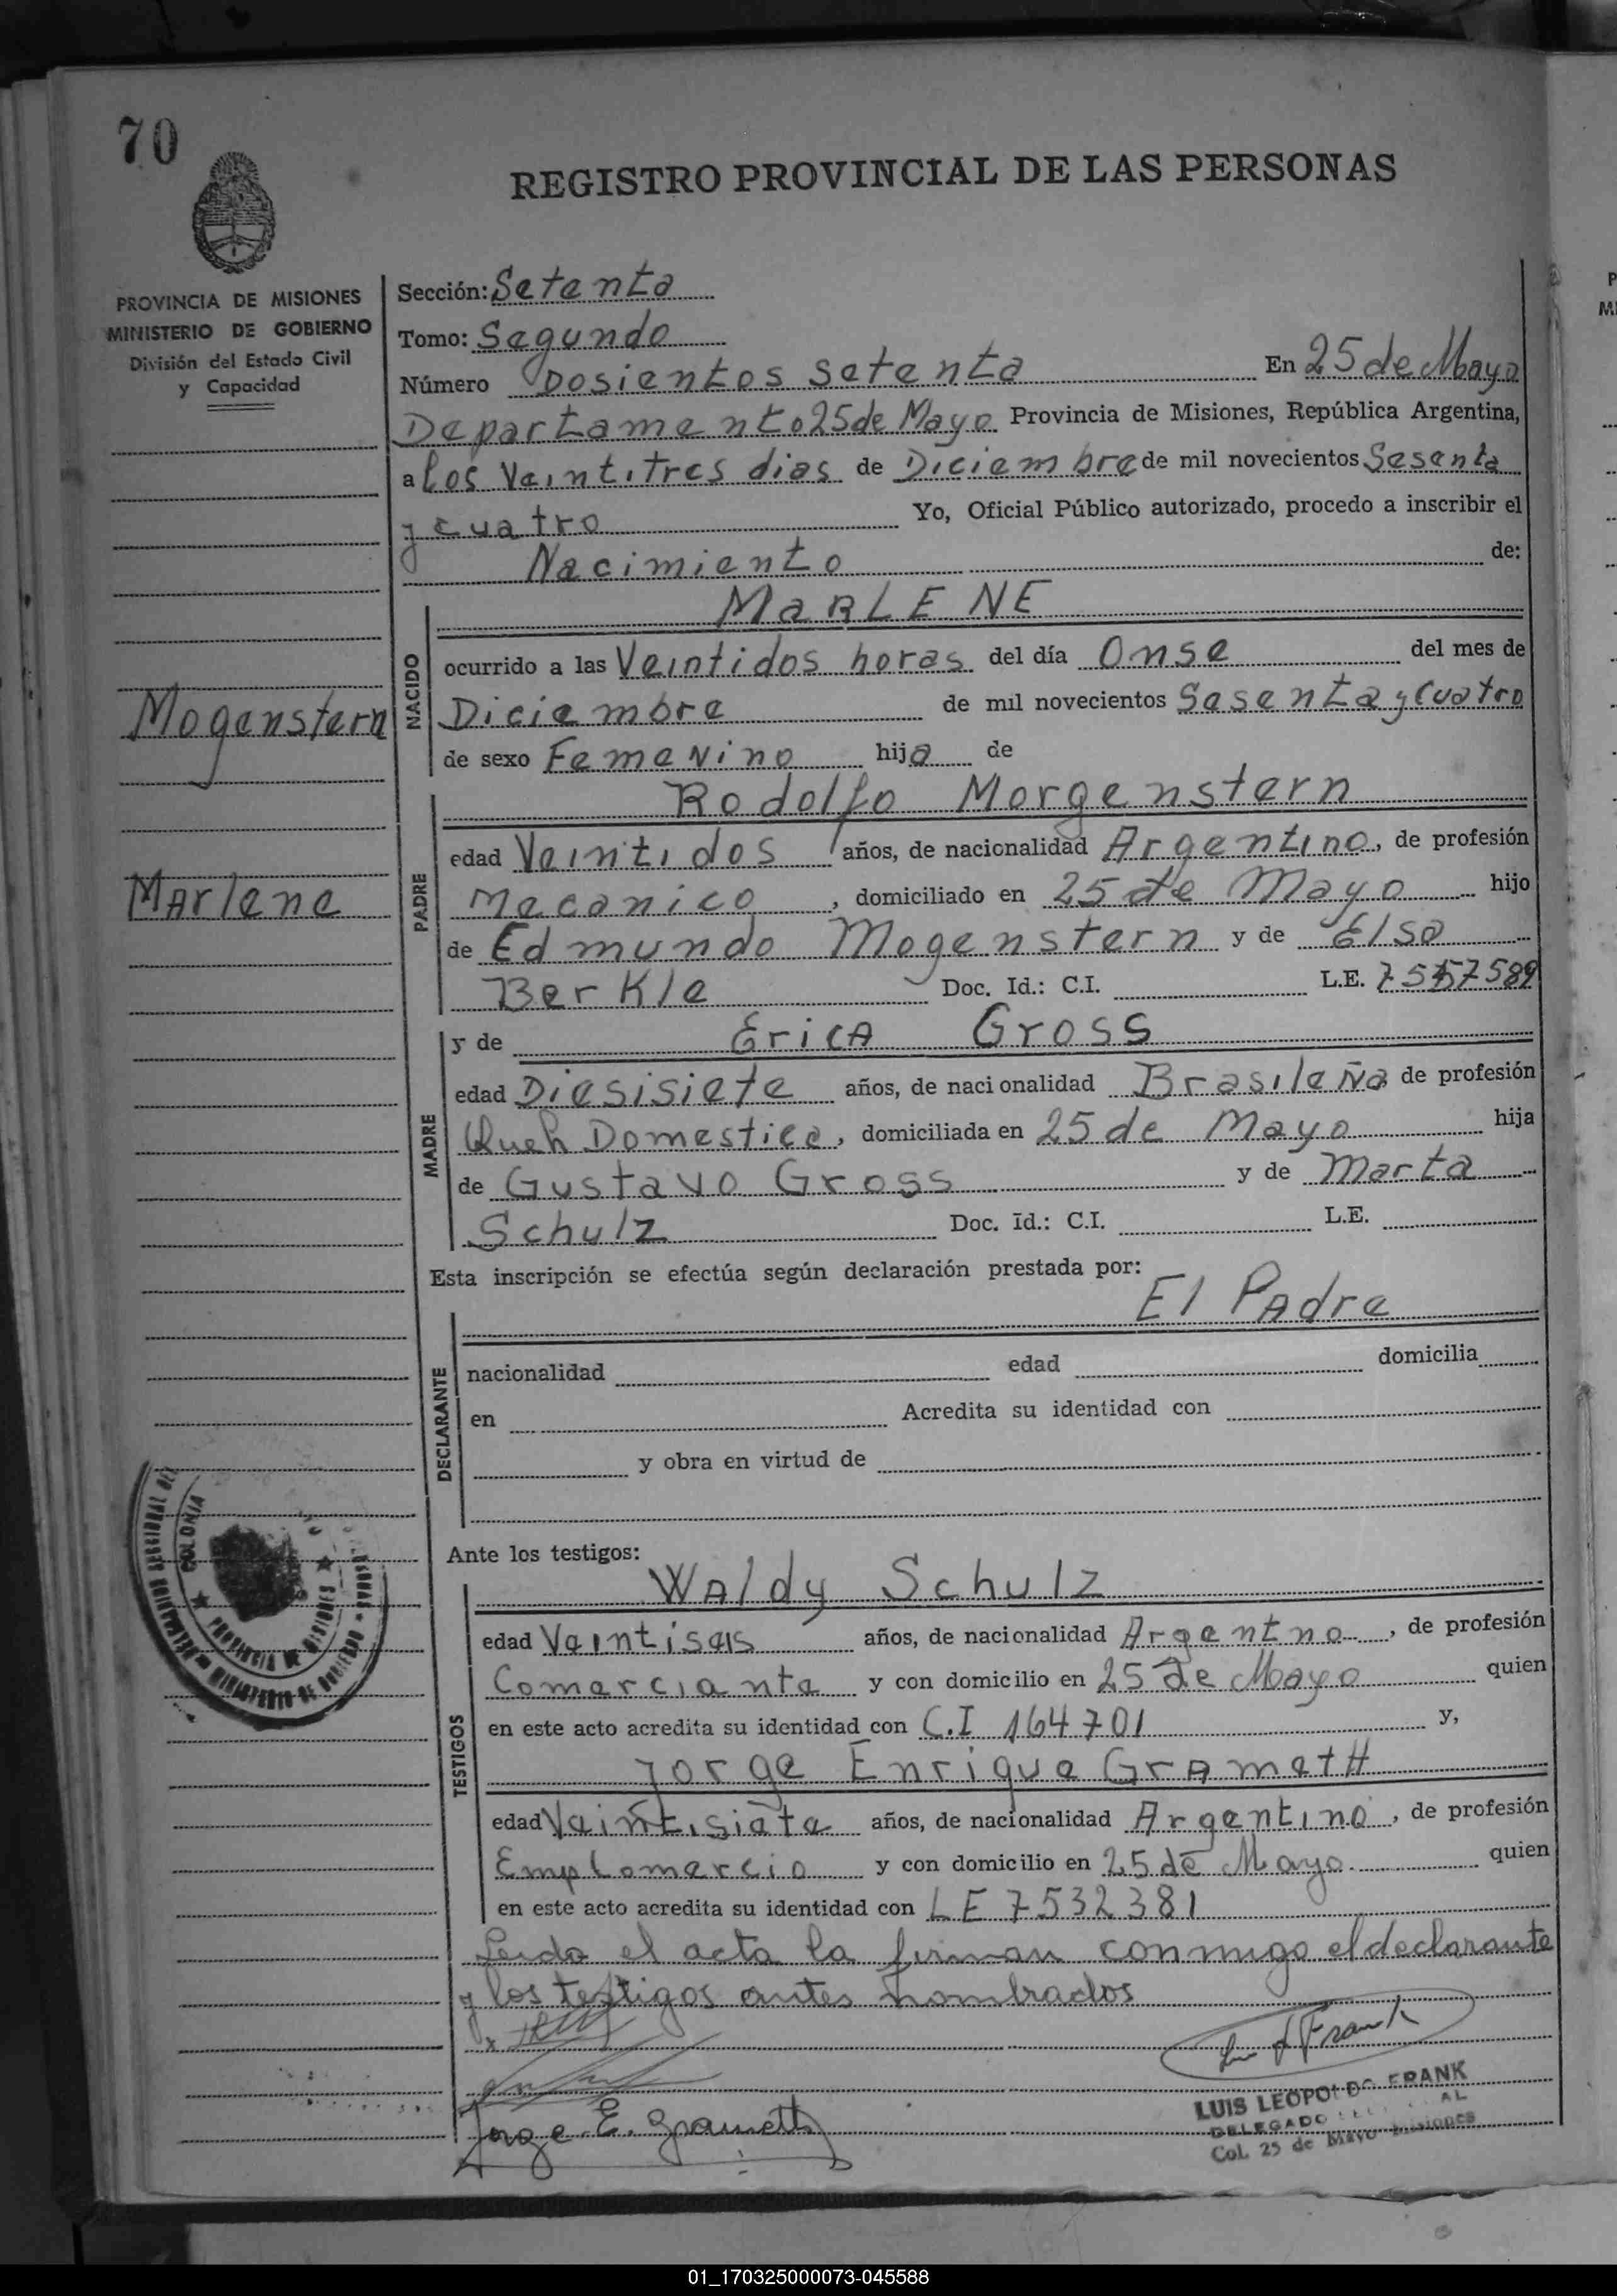 70
REGISTRO PROVINCIAL DE LAS PERSONAS
PROVINCIA DE MISIONES
MINISTERIO DE GOBIERNO
División del Estado Civil
y Capacidad
Mogenstern
Marlene
Sección: Setenta
Tomo: Segundo
Número Dosientos setenta En 25 de Mayo
Departamento 25 de Mayo Provincia de Misiones, República Argentina,
a los Veintitres dias de Diciembre de mil novecientos Sesenta
y cuatro Yo, Oficial Público autorizado, procedo a inscribir el
Nacimiento de:
NACIDO
MARLENE
ocurrido a las Veintidos horas del día Onse del mes de
Diciembre de mil novecientos Sesenta y Cuatro
de sexo Femenino hija de
PADRE
Rodolfo Morgenstern
edad Veintidos años, de nacionalidad Argentino, de profesión
Mecanico, domiciliado en 25 de Mayo hijo
de Edmundo Mogenstern y de Elsa
Berkle Doc. Id.: C.I. L.E.
MADRE
y de Erica Gross
edad Diesisiete años, de nacionalidad Brasileña de profesión
Queh Domestico, domiciliada en 25 de Mayo hija
de Gustavo Gross y de Marta
Schulz Doc. Id.: C.I. L.E.
Esta inscripción se efectúa según declaración prestada por:
El Padre
DECLARANTE
nacionalidad edad domicilia
en Acredita su identidad con
y obra en virtud de
Ante los testigos:
TESTIGOS
Waldy Schulz
edad Veintiseis años, de nacionalidad Argentno, de profesión
Comerciante y con domicilio en 25 de Mayo quien
en este acto acredita su identidad con C.I 164701 y,
Jorge Enrique Grameth
edad Veintisiete años, de nacionalidad Argentino, de profesión
Emp Comercio y con domicilio en 25 de Mayo quien
en este acto acredita su identidad con LE 7532381
Leido el acta la firman conmigo el declarante
y los testigos antes nombrados
Jorge E. Grameth
LUIS LEOPOLDO FRANK
DELEGADO
Col. 25 de Mayo Misiones
COLONIA
PROVINCIA DE MISIONES
MINISTERIO DE GOBIERNO
01_170325000073-045588